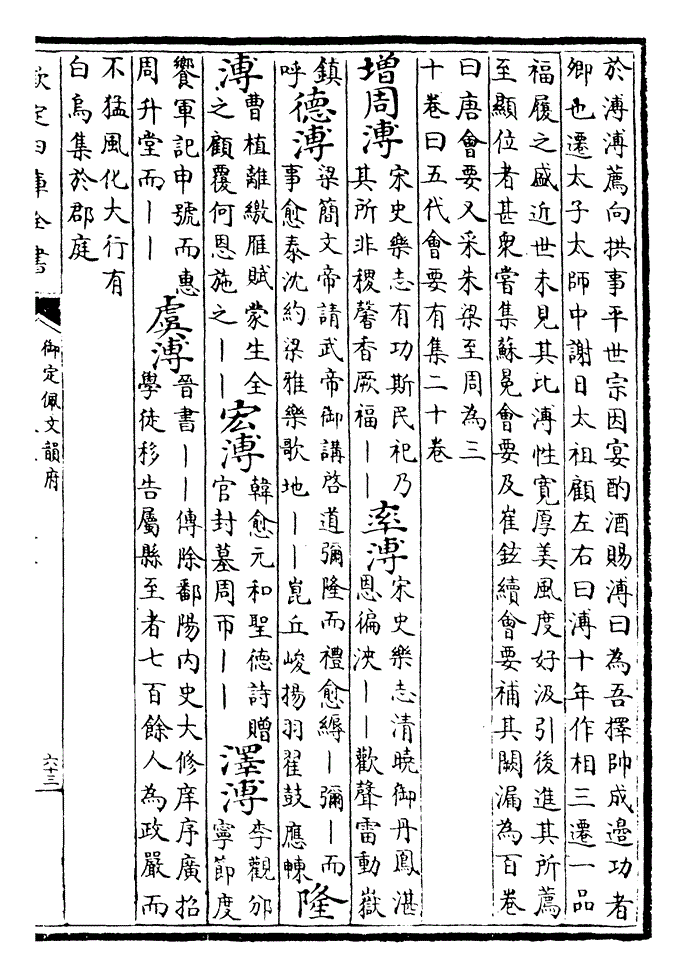 於溥溥薦向拱事平世宗因宴酌酒賜溥曰為吾擇帥成邉功者
卿也遷太子太師中謝日太祖顧左右曰溥十年作相三遷一品
福履之盛近世未見其比溥性寛厚美風度好汲引後進其所薦
至顯位者甚衆嘗集蘇冕會要及崔鉉續會要補其闕漏為百卷
曰唐會要又采朱梁至周為三
十卷曰五代會要有集二十卷
增周溥
宋史樂志有功斯民祀乃
其所非稷馨香厥福丨丨
率溥
宋史樂志清曉御丹鳳湛
恩徧泱丨丨歡聲雷動嶽
鎮
呼
德溥
梁簡文帝請武帝御講啓道彌隆而禮愈縟丨彌丨而
事愈泰沈約梁雅樂歌地丨丨崑丘峻揚羽翟鼓應朄
隆
溥
曹植離繳雁賦蒙生全
之顧覆何恩施之丨丨
宏溥
韓愈元和聖德詩贈
官封墓周帀丨丨
澤溥
李觀邠
寧節度
饗軍記申號而惠
周升堂而丨丨
虞溥
晉書丨丨傳除鄱陽内史大修庠序廣招
學徒移告屬縣至者七百餘人為政嚴而
不猛風化大行有
白烏集於郡庭
欽定四庫全書
御定佩文韻府
六十三